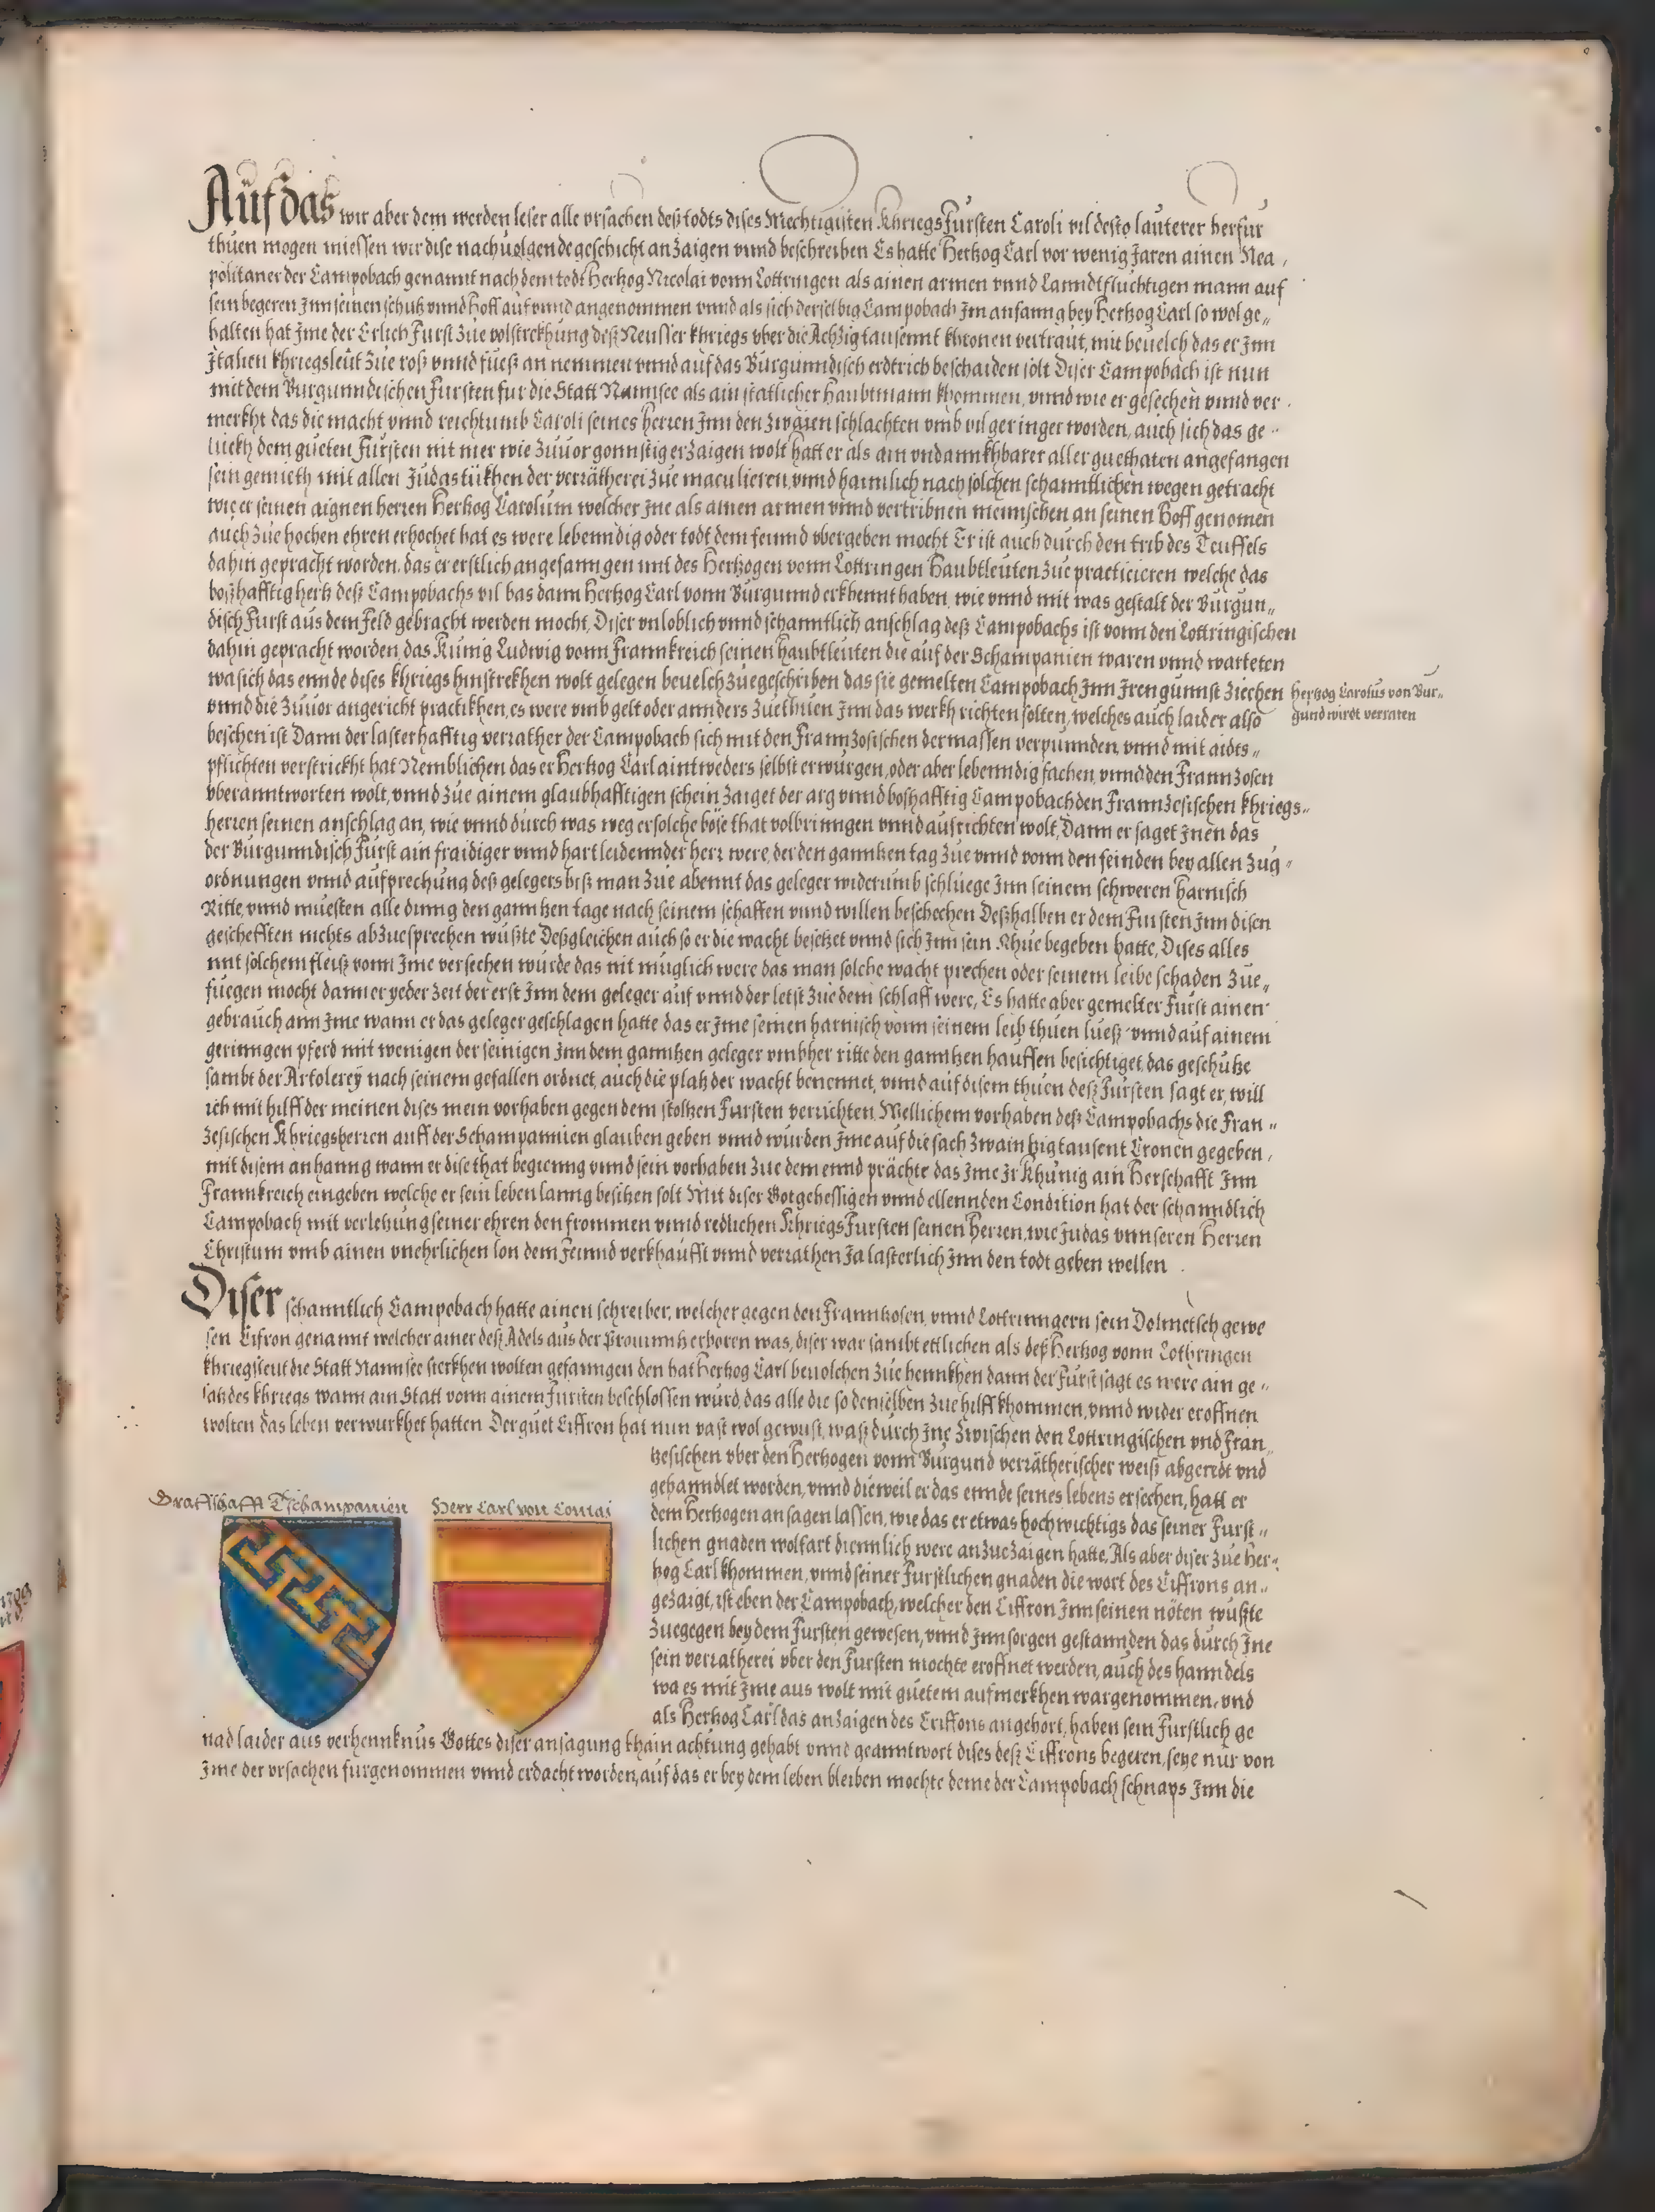 Auf das wir aber dem werden leser alle vrsachen deß todts dises Mechtigisten KhriegsFürsten Caroli vil desto lauterer herfür
thuen mogen miessen wir dise nachuolgende geschicht anzaigen vnnd beschreiben Es hatte Hertzog Carl vor wenig Jaren ainen Nea,
politaner der Campobach genannt nach dem todt Hertzog Nicolai vonn Lottringen als ainen armen vnnd Lanndtflüchtigen mann auf
sein begeren Jnn seinen schutz vnnd Hoff auf vnnd angenommen vnnd als sich derselbig Campobach Jm anfanng bey Hertzog Carl so wol ge„
halten hat Jme der Erlich Fürst zue volstreckhung deß Neusser khriegs vber die Achzig tausennt khronen vertraut, mit beuelch das er Jnn
Jtalien khriegsleüt zue roß vnnd fueß an nemmen vnnd auf das Burgunndisch erdtrich beschaiden solt Diser Campobach ist nun
mit dem Burgunndischen Fürsten für die Statt Nannsee als ain statlicher Haubtmann khommen, vnnd wie er gesechen vnnd ver
merkht das die macht vnnd reichtumb Caroli seines herren Jnn den zwaien schlachten vmb vil geringer worden, auch sich das ge
luekh dem gueten Fürsten nit mer wie zuuor gonnstig erzaigen wolt hatt er als ain vndannkhbarer aller guethaten angefangen
sein gemieth mit allen Judastükhen der verrätherei zue maculieren, vnnd haimlich nach solchen schanntlichen wegen getracht
wie er seinen aignen herren Hertzog Carolum welcher Jne als ainen armen vnnd vertribnen mennschen an seinen Hoff genomen
auch zue hochen ehren erhochet hat es were lebenndig oder todt dem feinnd vbergeben mocht Er ist auch durch den trib des Teuffels
dahin gepracht worden, das er erstlich angefanngen mit des Hertzogen vonn Lottringen Haubtleuten zue practicieren welche das
boßhafftig hertz deß Campobachs vil bas dann Hertzog Carl vonn Burgunnd erkhennt haben, wie vnnd mit was gestalt der Burgun„
disch Fürst aus dem Feld gebracht werden mocht, Diser vnloblich vnnd schanntlich anschlag deß Campobachs ist vonn den Lottringischen
dahin gepracht worden, das Künig Ludwig vonn Frannkreich seinen haubtleuten die auf der Schampanien waren vnnd warteten
wa sich das ennde dises khriegs hinstrekhen wolt gelegen beuelch zuegeschriben das sie gemelten Campobach Jnn Jren gunnst ziechen
vnnd die zuuor angericht practikhen, es were vmb gelt oder annders zuethuen Jnn das werkh richten solten, welches auch laider also
beschen ist Dann der lasterhafftig verrather der Campobach sich mit den Frannzosischen dermassen verpunnden, vnnd mit aidts„
pflichten verstrickht hat Nemblichen das er Hertzog Carl aintweders selbst erwürgen, oder aber lebenndig fachen, vnnd den Frannzosen
vberanntworten wolt, vnnd zue ainem glaubhafftigen schein zaiget der arg vnnd boßhafftig Campobach den Frannzesischen khriegs„
herren seinen anschlag an, wie vnnd durch was weg er solche böse that volbrinngen vnnd ausrichten wolt, Dann er saget Jnen das
der Burgunndisch Fürst ain fraidiger vnnd hart leidennder herr were, der den ganntzen tag zue vnnd vonn den feinden bey allen zug
ordnungen vnnd aufprechung deß gelegers biß man zue abennt das geleger widerumb schluege Jnn seinem schweren harnisch
Ritte, vnnd muesten alle dinng den ganntzen tage nach seinem schaffen vnnd willen beschechen Deßhalben er dem Fürsten Jnn disen
geschefften nichts abzuesprechen wußte Deßgleichen auch so er die wacht besetzet vnnd sich Jnn sein Rhue begeben hatte, Dises alles
mit solchem fleiß vonn Jme versechen wurde das nit müglich were das man solche wacht prechen oder seinem leibe schaden zue„
fuegen mocht dann er yeder zeit der erst Jnn dem geleger auf vnnd der letst zue dem schlaff were, Es hatte aber gemelter Fürst ainen
gebrauch ann Jme wann er das geleger geschlagen hatte das er Jme seinen harnisch vonn seinem leib thuen lueß vnnd auf ainem
gerinngen pferd mit wenigen der seinigen Jnn dem ganntzen geleger vmbher ritte den ganntzen hauffen besichtiget, das geschütze
sambt der Artolerey nach seinem gefallen ordnet, auch die platz der wacht benennet, vnnd auf disem thuen deß Fürsten sagt er, will
ich mit hilff der meinen dises mein vorhaben gegen dem stoltzen Fürsten verrichten, Wellichem vorhaben deß Campobachs die Fran„
zesischen Khriegsherren auff der Schampannien glauben geben vnnd wurden Jme auf die sach zwaintzig tausent Cronen gegeben,
mit disem anhanng wann er dise that begienng vnnd sein vorhaben zue dem ennd prächte das Jme Jr Khünig ain Herschafft Jnn
Frannkreich eingeben welche er sein leben lanng besitzen solt Mit diser Gotgehessigen vnnd ellennden Condition hat der schanndlich
Campobach mit verletzung seiner ehren den frommen vnnd redlichen KhriegsFürsten seinen Herren, wie Judas vnnseren Herren
Christum vmb ainen vnehrlichen lon dem Feinnd verkhaufft vnnd verrathen Ja lasterlich Jnn den todt geben wellen.
Hertzog Carolus von Bur„
gund wirdt verraten
Diser schanntlich Campobach hatte ainen schreiber, welcher gegen den Franntzosen, vnnd Lottrinngern sein Dolmetsch gewe
sen Cifron genannt welcher ainer deß Adels aus der Prouinntz erboren was, diser war sambt ettlichen als deß Hertzog vonn Lothringen
khriegsleut die Statt Nannsee sterkhen wolten gefanngen den hat Hertzog Carl beuolchen zue hennkhen dann der Fürst sagt es were ain ge„
satz des khriegs wann ain Statt vonn ainem Fürsten beschlossen wurd, das alle die so denselben zue hilff khommen, vnnd wider eroffnen
wolten das leben verwurkhet hatten Der guet Ciffron hat nun vast wol gewust, waß durch Jne zwischen den Lottringischen vnd Fran„
tzesischen vber den Hertzogen vonn Burgund verrätherischer weiß abgeredt vnd
gehanndlet worden, vnnd dieweil er das ennde seines lebens ersechen, hatt er
dem Hertzogen ansagen lassen, wie das er etwas hochwichtigs das seiner Fürst„
lichen gnaden wolfart diennlich were anzuezaigen hatte, Als aber diser zue Her„
tzog Carl khommen, vnnd seiner Fürstlichen gnaden die wort des Ciffrons an„
gezaigt, ist eben der Campobach, welcher den Ciffron Jnn seinen nöten wußte
zuegegen bey dem Fürsten gewesen, vnnd Jnn sorgen gestannden das durch Jne
sein verratherei vber den Fürsten mochte eroffnet werden, auch des hanndels
wa es mit Jme aus wolt mit guetem aufmerkhen wargenommen, vnd
als Hertzog Carl das anzaigen des Criffons angehört, haben sein Fürstlich ge
Graffschafft Tschampanien
Herr Carl von
nad laider aus verhennknus Gottes diser ansagung khain achtung gehabt vnnd geanntwort dises deß Ciffrons begeren, seye nur von
Jme der vrsachen fürgenommen vnnd erdacht worden, auf das er bey dem leben bleiben mochte deme der Campobach schnaps Jnn die